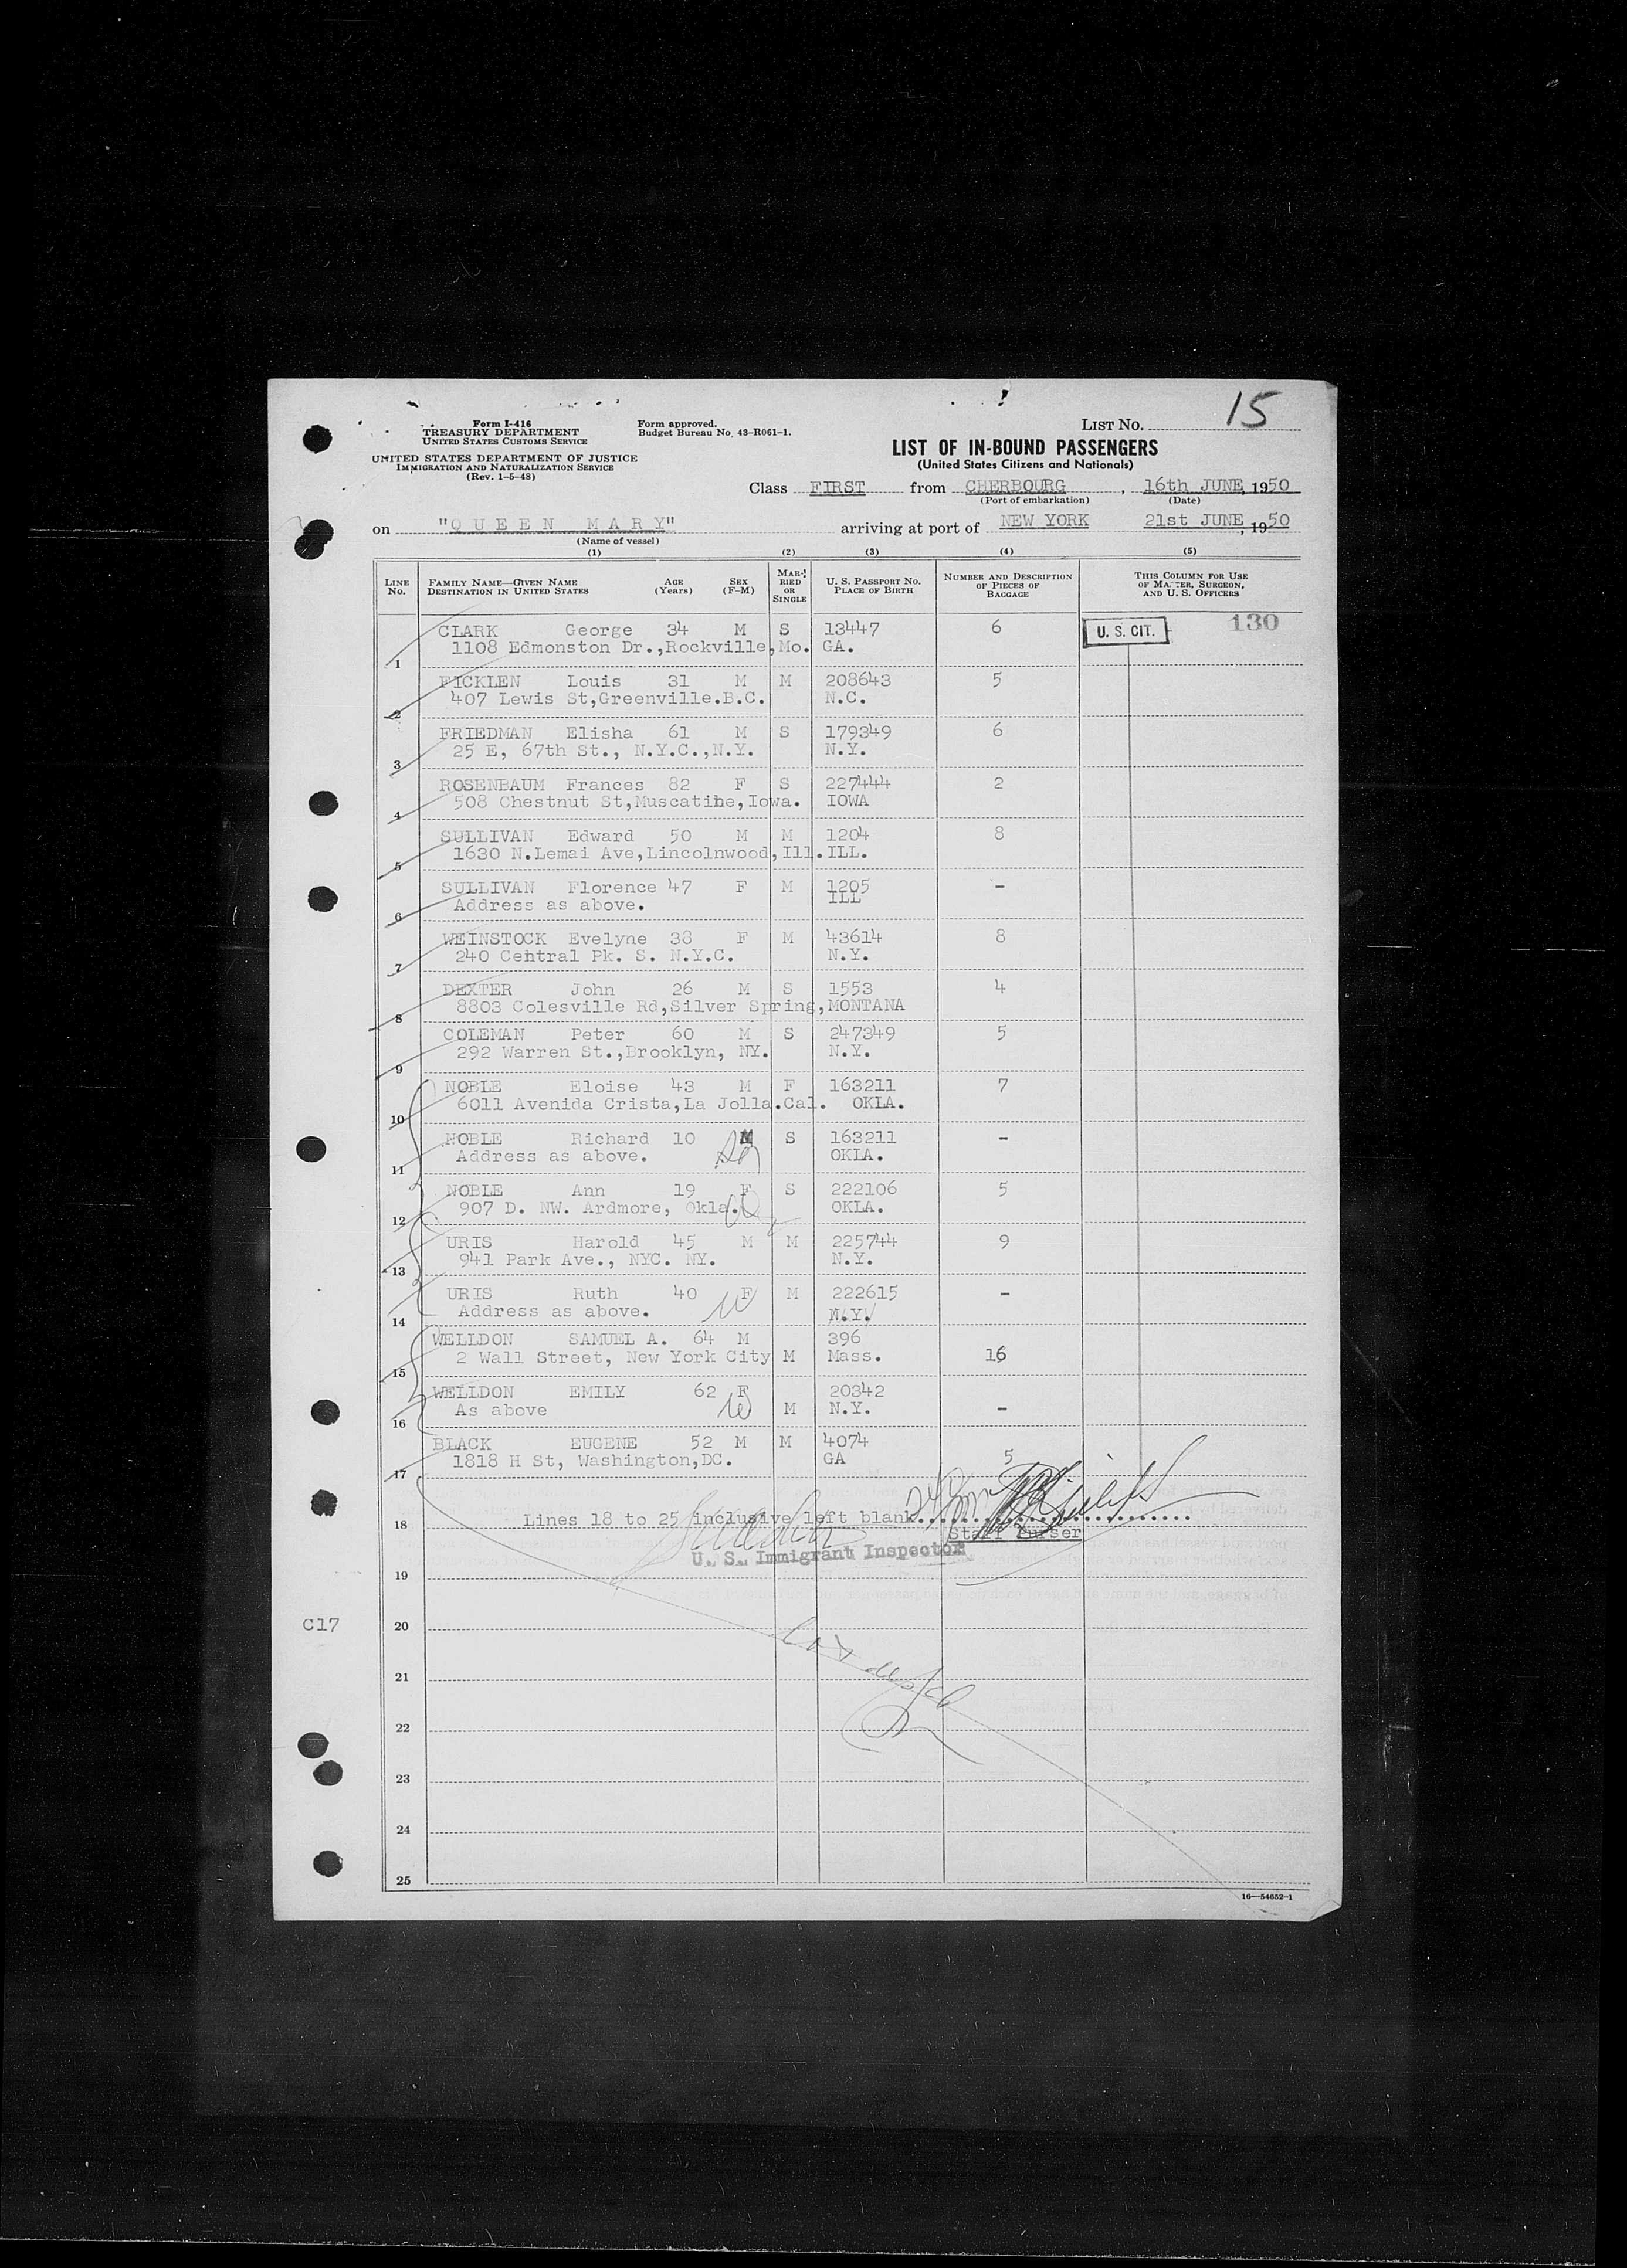 15
Form I-416
TREASURY DEPARTMENT
UNITED STATES CUSTOMS SERVICE
UNITED STATES DEPARTMENT OF JUSTICE
IMMIGRATION AND NATURALIZATION SERVICE
(Rev. 1-5-48)
Form approved.
Budget Bureau No. 43-R061-1.
LIST No.
LIST OF IN-BOUND PASSENGERS
(United States Citizens and Nationals)
Class FIRST from CHERBOURG , 16th JUNE, 1950
(Port of embarkation) (Date)
on "QUEEN MARY" arriving at port of NEW YORK 21st JUNE, 1950
(Name of vessel)
(1) (2) (3) (4) (5)
LINE No. FAMILY NAME—GIVEN NAME DESTINATION IN UNITED STATES AGE (Years) SEX (F-M) MARRIED OR SINGLE U. S. PASSPORT NO. PLACE OF BIRTH NUMBER AND DESCRIPTION OF PIECES OF BAGGAGE THIS COLUMN FOR USE OF MASTER, SURGEON, AND U. S. OFFICERS
CLARK George 34 M S 13447 6 U. S. CIT. 130
1 1108 Edmonston Dr.,Rockville,Mo. GA.
FICKLEN Louis 31 M M 208643 5
2 407 Lewis St,Greenville.B.C. N.C.
FRIEDMAN Elisha 61 M S 179349 6
3 25 E, 67th St., N.Y.C.,N.Y. N.Y.
ROSENBAUM Frances 82 F S 227444 2
4 508 Chestnut St,Muscatine,Iowa. IOWA
SULLIVAN Edward 50 M M 1204 8
5 1630 N.Lemai Ave,Lincolnwood,Ill. ILL.
SULLIVAN Florence 47 F M 1205 -
6 Address as above. ILL
WEINSTOCK Evelyne 38 F M 43614 8
7 240 Central Pk. S. N.Y.C. N.Y.
DEXTER John 26 M S 1553 4
8 8803 Colesville Rd,Silver Spring,MONTANA
COLEMAN Peter 60 M S 247349 5
9 292 Warren St.,Brooklyn, NY. N.Y.
NOBLE Eloise 43 M F 163211 7
10 6011 Avenida Crista,La Jolla.Cal. OKLA.
NOBLE Richard 10 M S 163211 -
11 Address as above. OKLA.
NOBLE Ann 19 F S 222106 5
12 907 D. NW. Ardmore, Okla. OKLA.
URIS Harold 45 M M 225744 9
13 941 Park Ave., NYC. NY. N.Y.
URIS Ruth 40 F M 222615 -
14 Address as above. N.Y.
WELLDON SAMUEL A. 64 M 396
15 2 Wall Street, New York City M Mass. 16
WELLDON EMILY 62 F 20342
16 As above M N.Y. -
BLACK EUGENE 52 M M 4074
17 1818 H St, Washington,DC. GA 5
18 Lines 18 to 25 inclusive left blank
Staff Purser
U. S. Immigrant Inspector
19
C17 20
21
22
23
24
25
16—54652-1